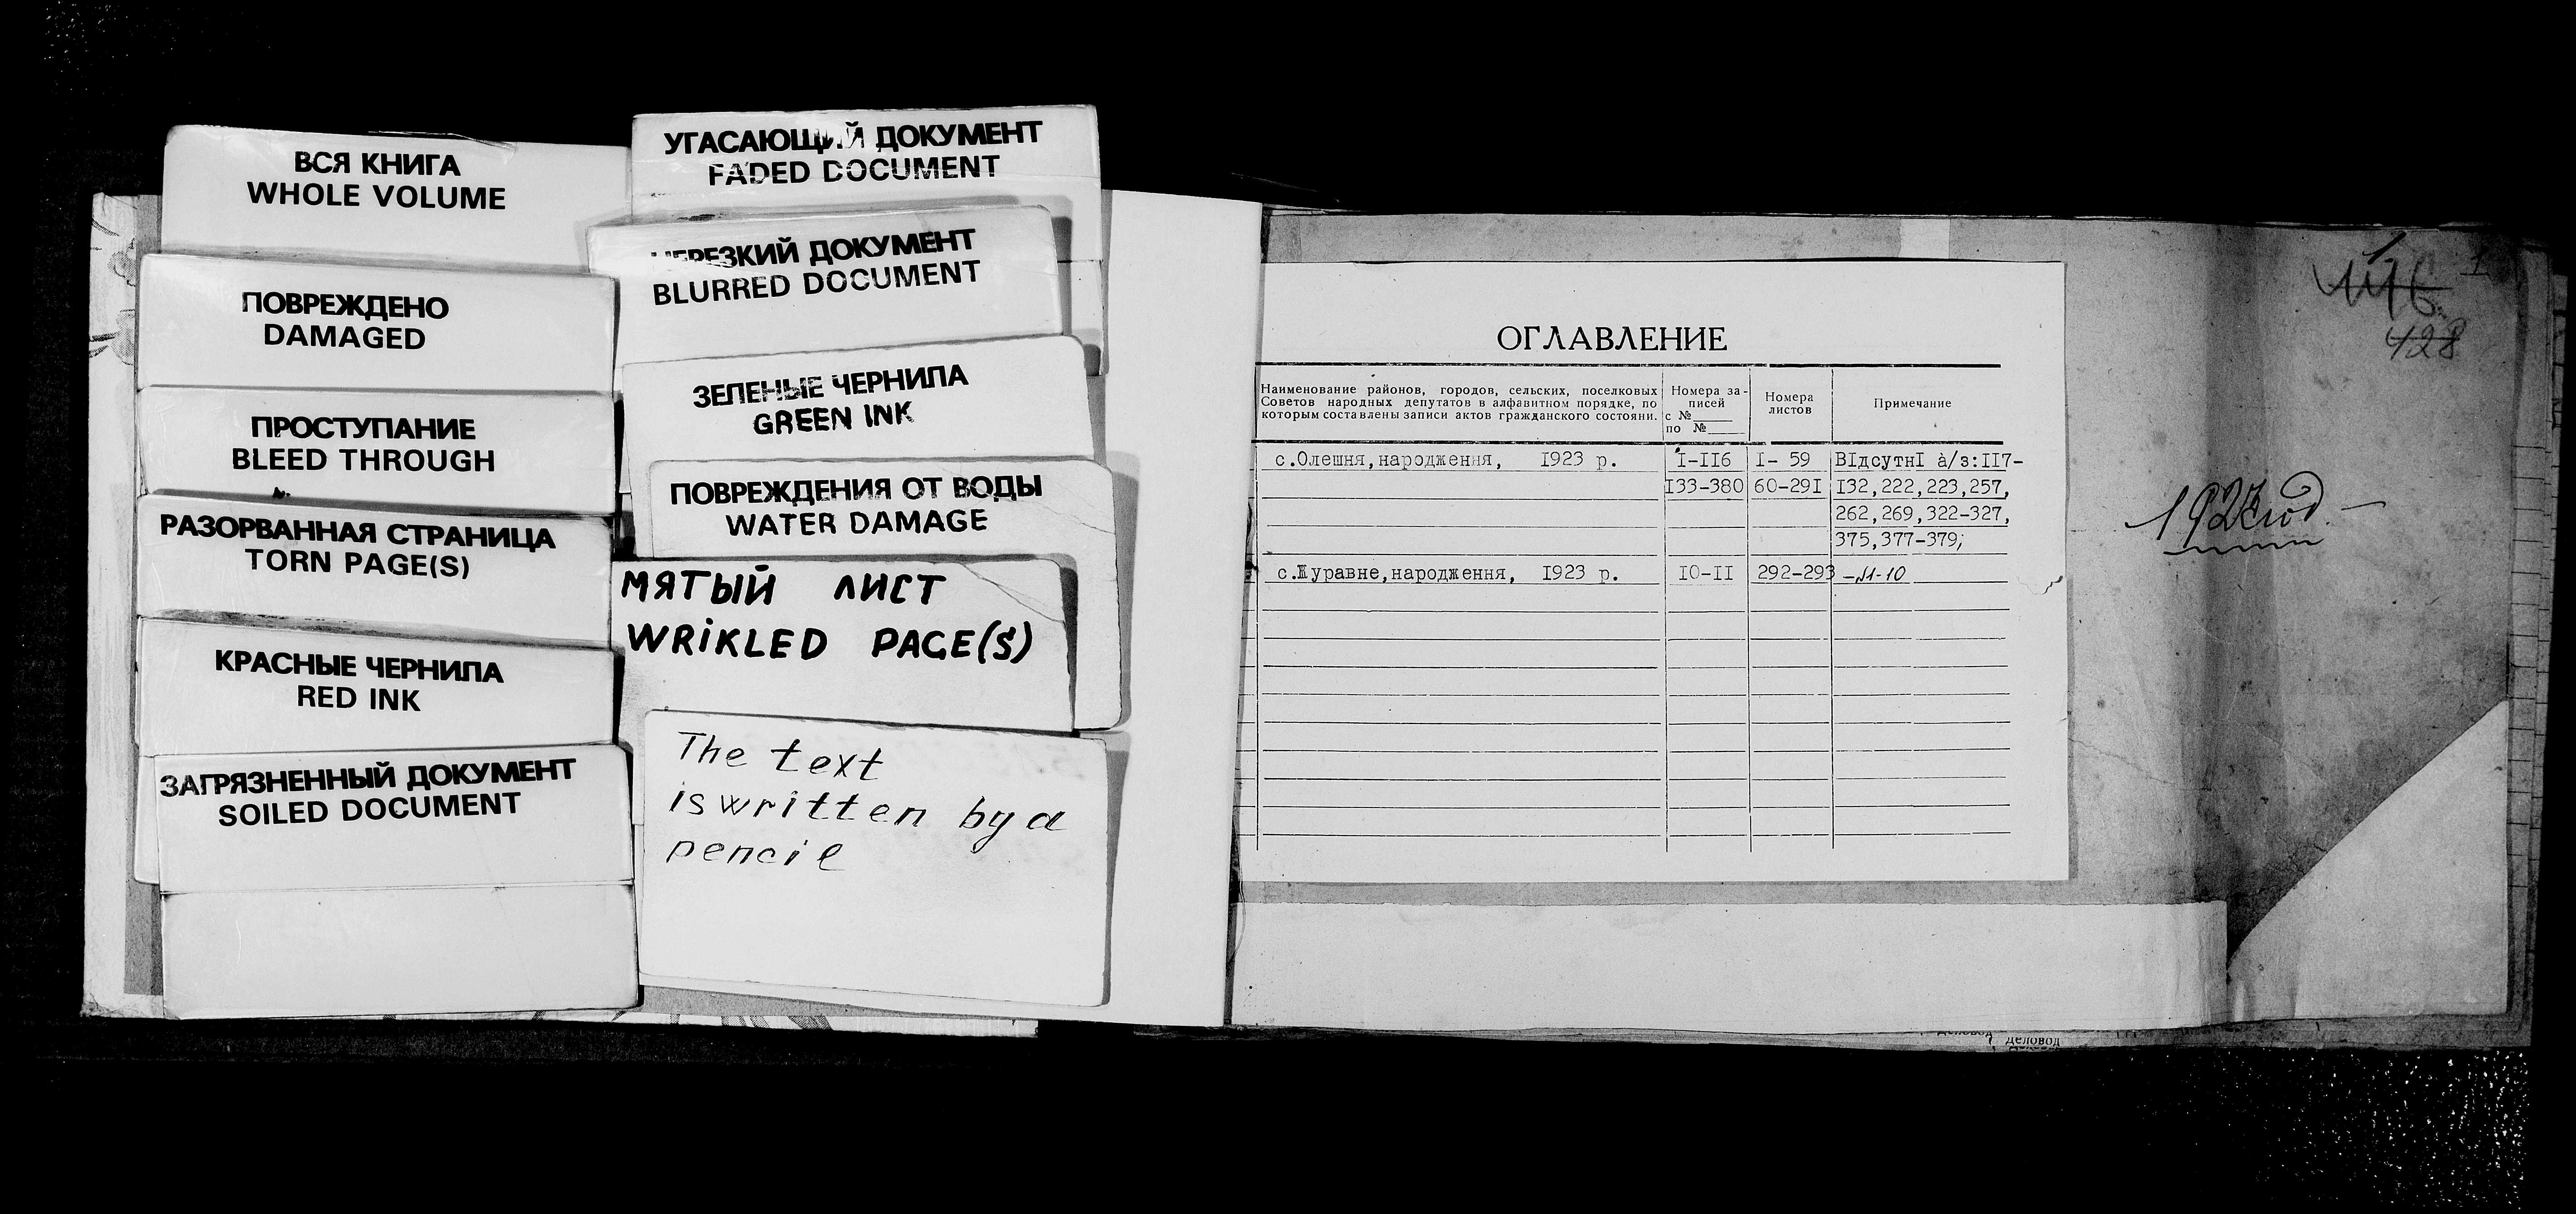 ВСЯ КНИГА
WHOLE VOLUME
ПОВРЕЖДЕНО
DAMAGED
ПРОСТУПАНИЕ
BLEED THROUGH
РАЗОРВАННАЯ СТРАНИЦА
TORN PAGE(S)
КРАСНЫЕ ЧЕРНИЛА
RED INK
ЗАГРЯЗНЕННЫЙ ДОКУМЕНТ
SOILED DOCUMENT
УГАСАЮЩИЙ ДОКУМЕНТ
FADED DOCUMENT
НЕРЕЗКИЙ ДОКУМЕНТ
BLURRED DOCUMENT
ЗЕЛЕНЫЕ ЧЕРНИЛА
GREEN INK
ПОВРЕЖДЕНИЯ ОТ ВОДЫ
WATER DAMAGE
МЯТЫЙ ЛИСТ
WRIKLED PAGE(S)
The text
is written by a
pencil
ОГЛАВЛЕНИЕ
Наименование районов, городов, сельских, поселковых
Советов народных депутатов в алфавитном порядке, по
которым составлены записи актов гражданского состояни.
Номера за-
писей
с №
по №
Номера
листов
Примечание
с.Олешня,народження, 1923 р. I-II6 I- 59 ВIдсутнI а/з:II7-
I33-380 60-29I I32,222,223,257,
262,269,322-327,
375,377-379;
с.Журавне,народження, I923 р. IO-II 292-293 -11-10
1
428
1923 год.
Деловод